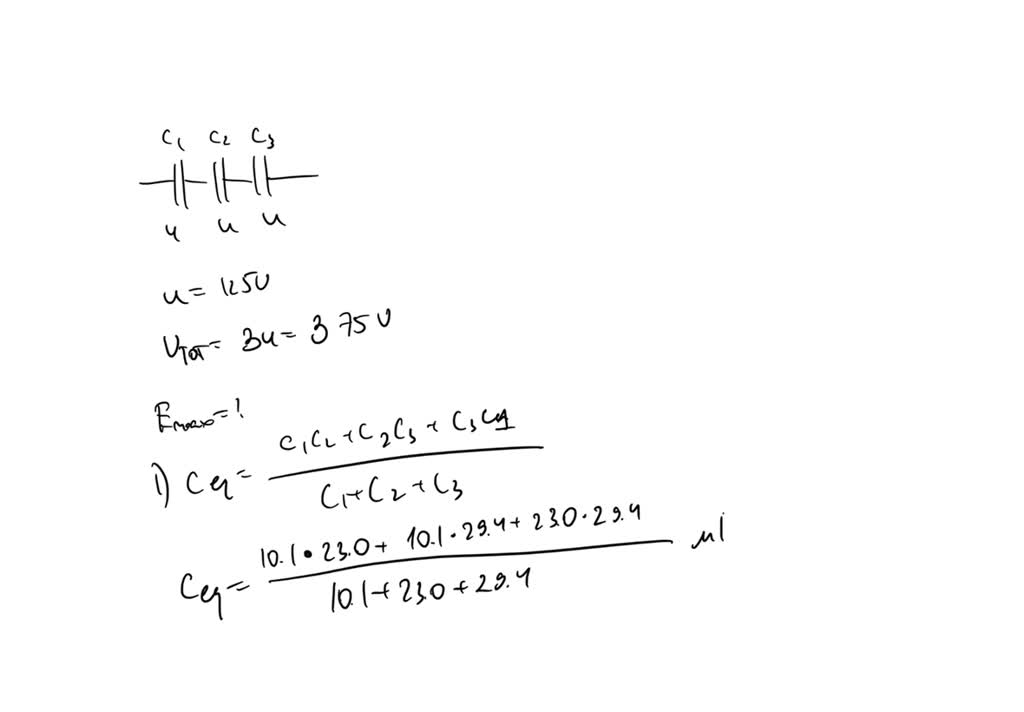 C₁ C₂ C₃
u u u
u = 125V
U_TOT = 3u = 375V
E_max = ?
1) Ceq = (C₁C₂ + C₂C₃ + C₃C₁) / (C₁ + C₂ + C₃)
Ceq = (10.1 • 23.0 + 10.1 · 29.4 + 23.0 · 29.4) / (10.1 + 23.0 + 29.4) μF